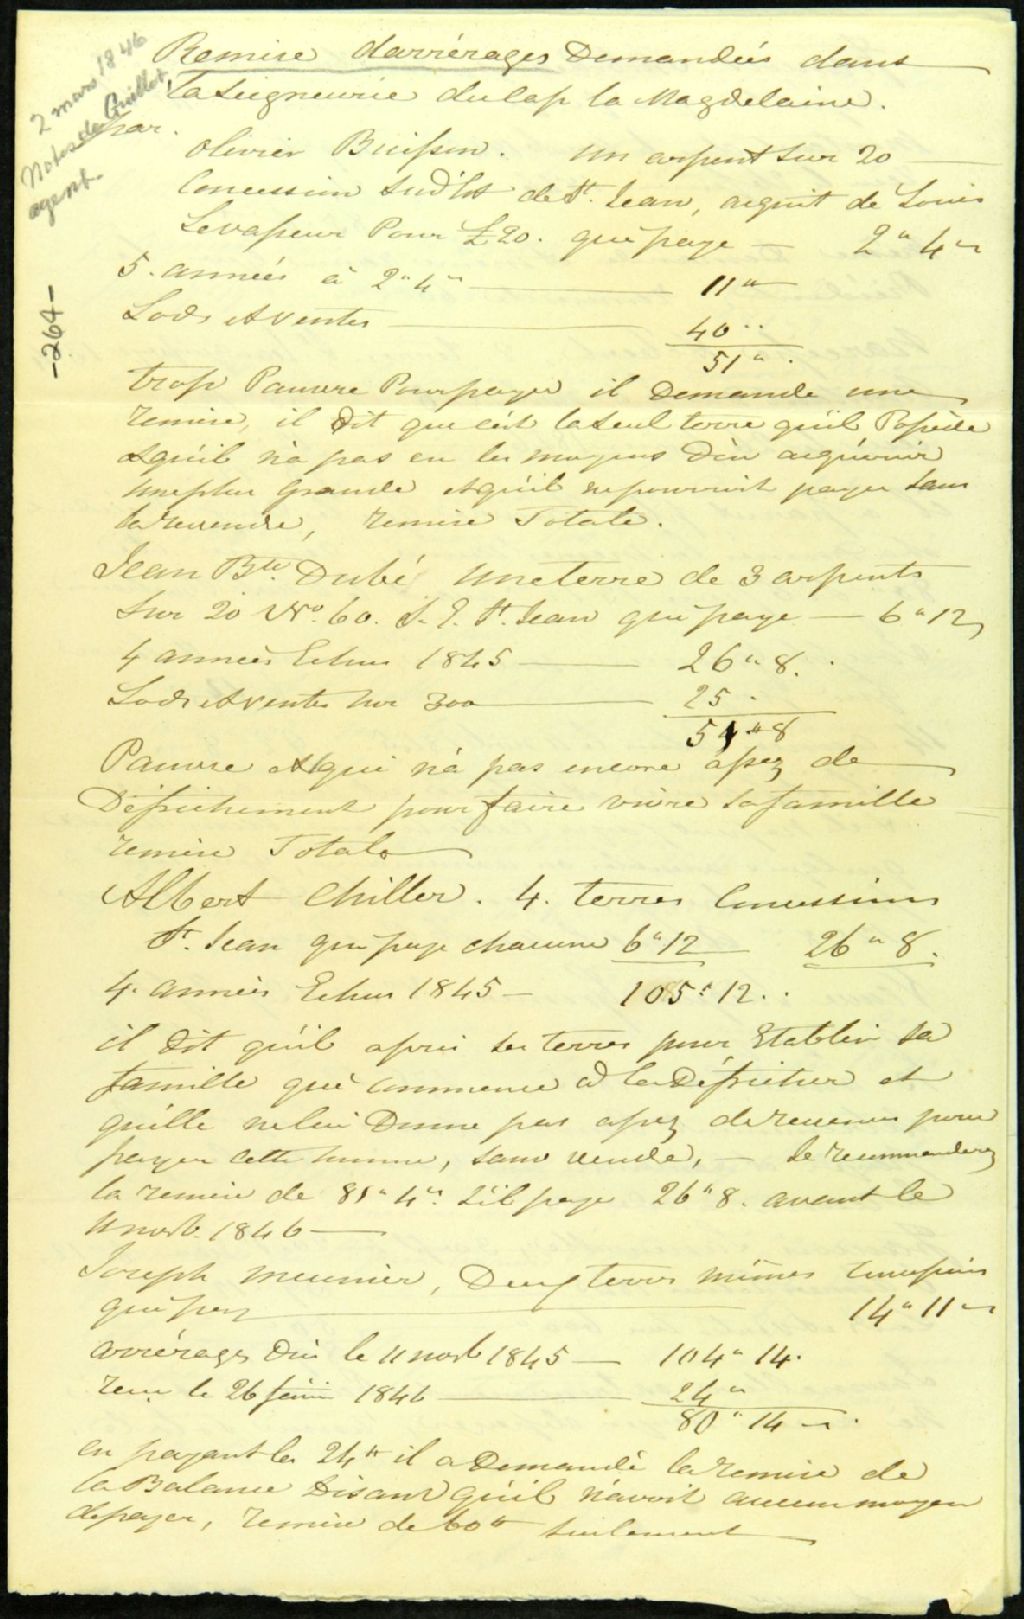 2 mars 1846
Notes de Guillet,
agent.
-264-
Remise d'arriérages Demandés dans
la Seigneurie du Cap la Magdelaine.
par.
Olivier Buisson. un arpent sur 20
Concession Sud'Est de St. Jean, acquit de Louis
Levasseur Pour £20. qui paye — 2" 4"
5. années à 2" 4" — 11"
Lods et ventes — 40"
51"
trop Pauvre Pour payer il Demande une
remise, il Dit que c'est la seul terre qu'il Possède
& qu'il n'a pas eu les moyens D'en acquérir
une plus Grande et qu'il ne pourroit payer sans
la revendre, remise Totale.
Jean Bte. Dubé une terre de 3 arpents
sur 20 No. 60. S. E. St. Jean qui paye — 6" 12
4 années Echus 1845 — 26" 8.
Lods et ventes sur 300 — 25
51" 8
Pauvre et qui n'a pas encore assez de
Défrichement pour faire vivre sa famille
remise Totale
Albert Chiller. 4. terres Concessions
St. Jean qui paye chacune 6" 12 26" 8.
4. années Echus 1845 — 105" 12.
il Dit qu'il a pris ses terres pour Etablir sa
famille qui commence à les Défricher et
qu'elle ne lui Donne pas assez de revenus pour
payer cette somme, sans vendre, — Je recommanderez
la remise de 81" 4" s'il paye 26" 8. avant le
11 novb. 1846 —
Joseph Meunier, Deux terres mêmes Concessions
qui paye — 14" 11"
arriérages Dus le 11 novb 1845 — 104" 14.
recu le 26 fév. 1846 — 24"
80" 14
en payant les 24" il a Demandé la remise de
la Balance Disant qu'il n'avoit aucun moyen
de payer, remise de 60" seulement —